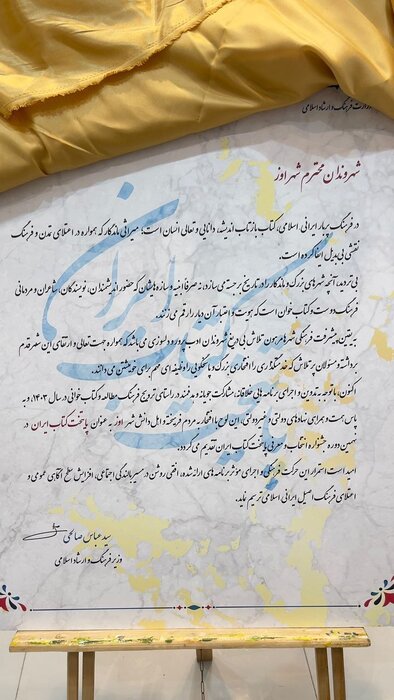 وزارت فرهنگ و ارشاد اسلامی
شهروندان محترم شهر اوز
در فرهنگ پربار ایرانی اسلامی، کتاب بازتاب اندیشه، دانایی و تعالی انسان است؛ میراثی ماندگار که همواره در اعتلای تمدن و فرهنگ
نقشی بی‌بدیل ایفا کرده است.
بی‌تردید، آنچه شهرهای بزرگ و ماندگار را در تاریخ برجسته می‌سازد، نه صرفاً ابنیه و سازه‌هایشان که حضور اندیشمندان، نویسندگان، شاعران و مردمانی
فرهنگ دوست و کتاب‌خوان است که هویت و اعتبار آن دیار را رقم می‌زنند.
به یقین پیشرفت فرهنگی شهرها مرهون تلاش بی‌دریغ شهروندان ادب‌پرور و دلسوزی می‌باشد که همواره جهت تعالی و ارتقای این شهر قدم
برداشته و مسئولان پرتلاش که خدمتگذاری را افتخاری بزرگ و پاسخگویی را وظیفه‌ای مهم برای خویشتن می‌دانند.
اکنون، با توجه به تدوین و اجرای برنامه‌هایی خلاقانه، مشارکت جویانه و هدفمند در راستای ترویج فرهنگ مطالعه و کتاب‌خوانی در سال ۱۴۰۳، و به
پاس همت و همراهی نهادهای دولتی و غیردولتی، این لوح با افتخار به مردم فرهیخته و اهل دانش شهر اوز به عنوان پایتخت کتاب ایران در
نهمین دوره جشنواره انتخاب و معرفی پایتخت کتاب ایران تقدیم می‌گردد.
امید است استمرار این حرکت فرهنگی و اجرای موثر برنامه‌های ارائه شده، افقی روشن در مسیر بالندگی اجتماعی، افزایش سطح آگاهی عمومی و
اعتلای فرهنگ اصیل ایرانی اسلامی ترسیم نماید.
سید عباس صالحی
وزیر فرهنگ و ارشاد اسلامی
پایتخت کتاب ایران